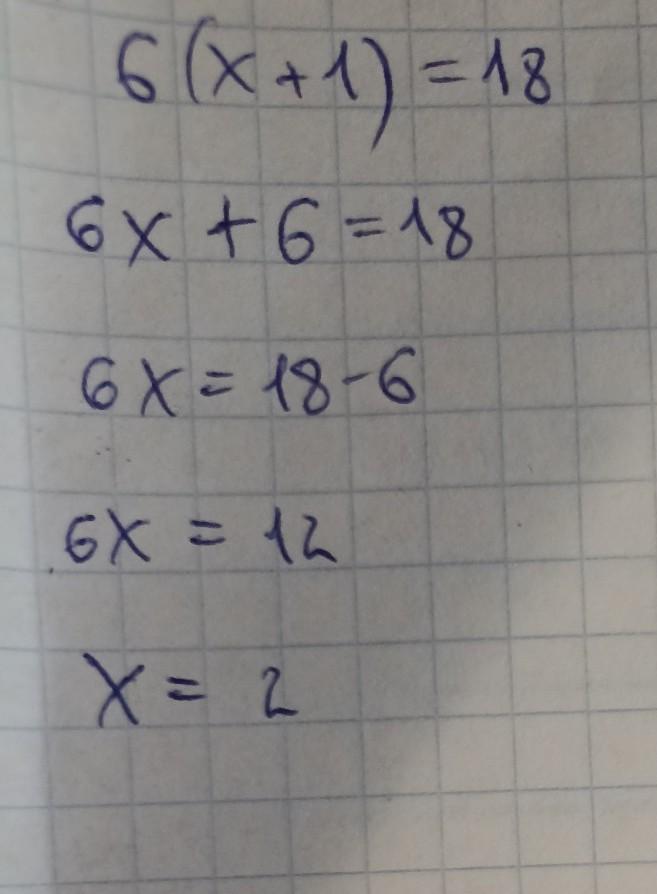 6(x+1)=18
6x+6=18
6x=18-6
6x=12
x=2